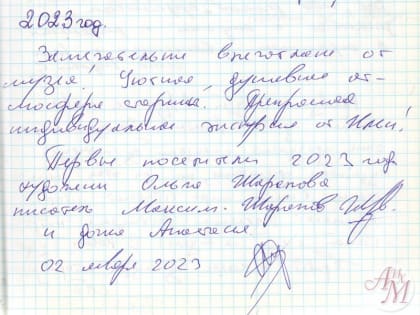 2023 год.
Замечательные впечатления от
музея! Уютная, душевная ат-
мосфера старины! Прекрасная
индивидуальная экскурсия от Инны!
Первые посетители 2023 года
художник Ольга Шарапова
писатель Максим Шарапов
и дочка Анастасия
02 января 2023
АМ